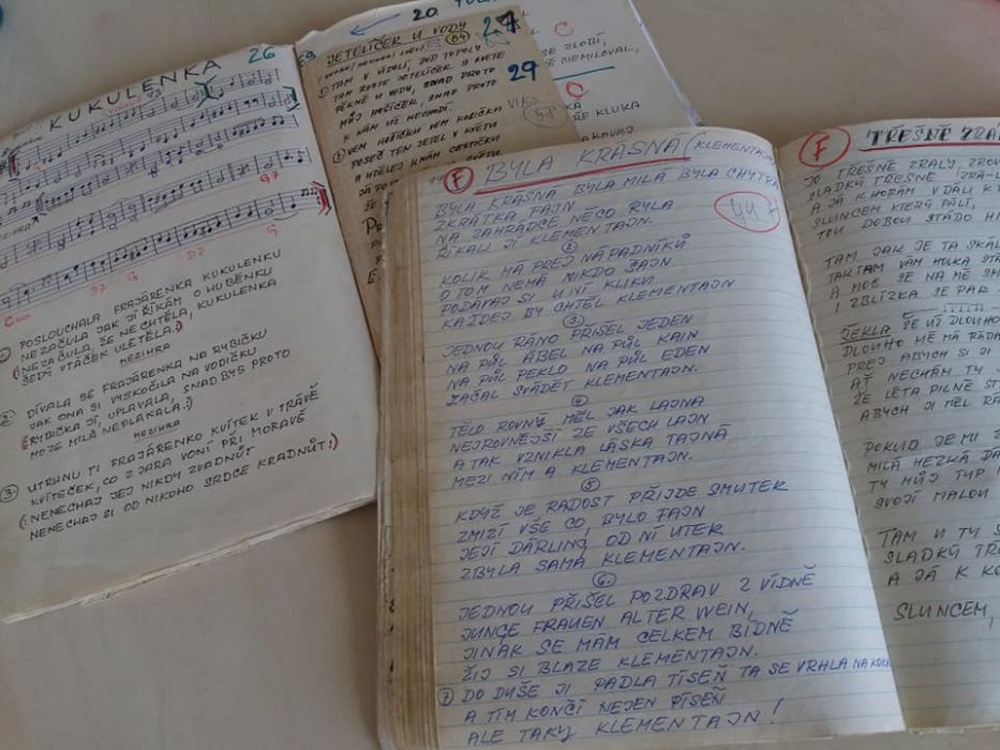 26
KUKULENKA
G
G7
D7
G
D7
G
C
① POSLOUCHALA FRAJÁRENKA KUKULENKU
NEZAČULA JAK JÍ ŘÍKÁM O HUBĚNKU
(:NEZAČULA, ŽE NECHTĚLA, KUKULENKA
ŠEDÝ VTÁČEK ULETĚLA:)
MEZIHRA
② DÍVALA SE FRAJÁRENKA NA RYBIČKU
JAK ONA SI VYSKOČILA NA VODIČKU
(:RYBIČKA JÍ, UPLAVALA, SNAD BYS PROTO
MOJE MILÁ NEPLAKALA:)
MEZIHRA
③ UTRHNU TI FRAJÁRENKO KVÍTEK V TRÁVĚ
KVÍTEČEK, CO Z JARA VONÍ PŘI MORAVĚ
(:NENECHAJ JEJ NIKDY ZVADNÚT
NENECHAJ SI OD NIKOHO SRDCE KRADNÚT:)
20.
JETELÍČEK U VODY
54
27
29
TAM V ÚDOLÍ, POD TOPOLY
TAM ROSTE JETELÍČEK A KVETE
PĚKNĚ U VODY, SNAD PROTO
MŮJ HOŠÍČEK, SNAD PROTO
K NÁM UŽ NECHODÍ
C
SE ZLOBÍ,
NEMILOVAL,
C
KLUKA
F BYLA KRÁSNÁ (KLEMENTAJN
44
BYLA KRÁSNÁ BYLA MILÁ BYLA CHYTRÁ
ZKRÁTKA FAJN
NA ZAHRÁDCE NĚCO RYLA
ŘÍKALI JÍ KLEMENTAJN.
②
KOLIK MÁ PREJ NÁPADNÍKŮ
O TOM NEMÁ NIKDO ŠAJN
PODÁVAJ SI U NÍ KLIKU
KAŽDEJ BY CHTĚL KLEMENTAJN
③
JEDNOU RÁNO PŘIŠEL JEDEN
NA PŮL ÁBEL NA PŮL KAIN
NA PŮL PEKLO NA PŮL EDEN
ZAČAL SVÁDĚT KLEMENTAJN.
④
TĚLO ROVNÝ MĚL JAK LAJNA
NEJROVNĚJŠÍ ZE VŠECH LAJN
A TAK VZNIKLA LÁSKA TAJNÁ
MEZI NÍM A KLEMENTAJN.
⑤
KDYŽ JE RADOST PŘIJDE SMUTEK
ZMIZÍ VŠE CO, BYLO FAJN
JEJÍ DÁRLING OD NÍ UTEK
ZBYLA SAMA KLEMENTAJN.
6.
JEDNOU PŘIŠEL POZDRAV Z VÍDNĚ
JUNGE FRAUEN ALTER WEIN,
JINAK SE MÁM CELKEM BÍDNĚ
ŽIJ SI BLAZE KLEMENTAJN.
⑦ DO DUŠE JÍ PADLA TÍSEŇ TA SE VRHLA NA
A TÍM KONČÍ NEJEN PÍSEŇ
ALE TAKY KLEMENTAJN!
F TŘEŠNĚ ZRÁ
JÓ TŘEŠNĚ ZRÁLY,
SLADKÝ TŘEŠNĚ ZRÁ-L
A JÁ K HORÁM V DÁLI K
SLUNCEM KTERÝ PÁLÍ,
TOU DOBOU STÁDO
TAM JAK JE TA SKÁ
TAK TAM VÁM HOLKA STÁ
A MOC SE NA MĚ SM
I ZBLÍZKA SE PÁR
ŘEKLA ŽE UŽ DLOUHO
DLOUHO MĚ MÁ RÁDA
PREJ ABYCH SI JI
AŤ NECHÁM TY
ŽE LÉTA PILNĚ ST
ABYCH JI MĚL RÁ
POKUD JE MI Z
MILÁ HEZKÁ DÁ
TY MŮJ TYP
SVOJÍ MALOU
TAM U TÝ S
SLADKÝ TŘ
A JÁ K KO
SLUNCEM,